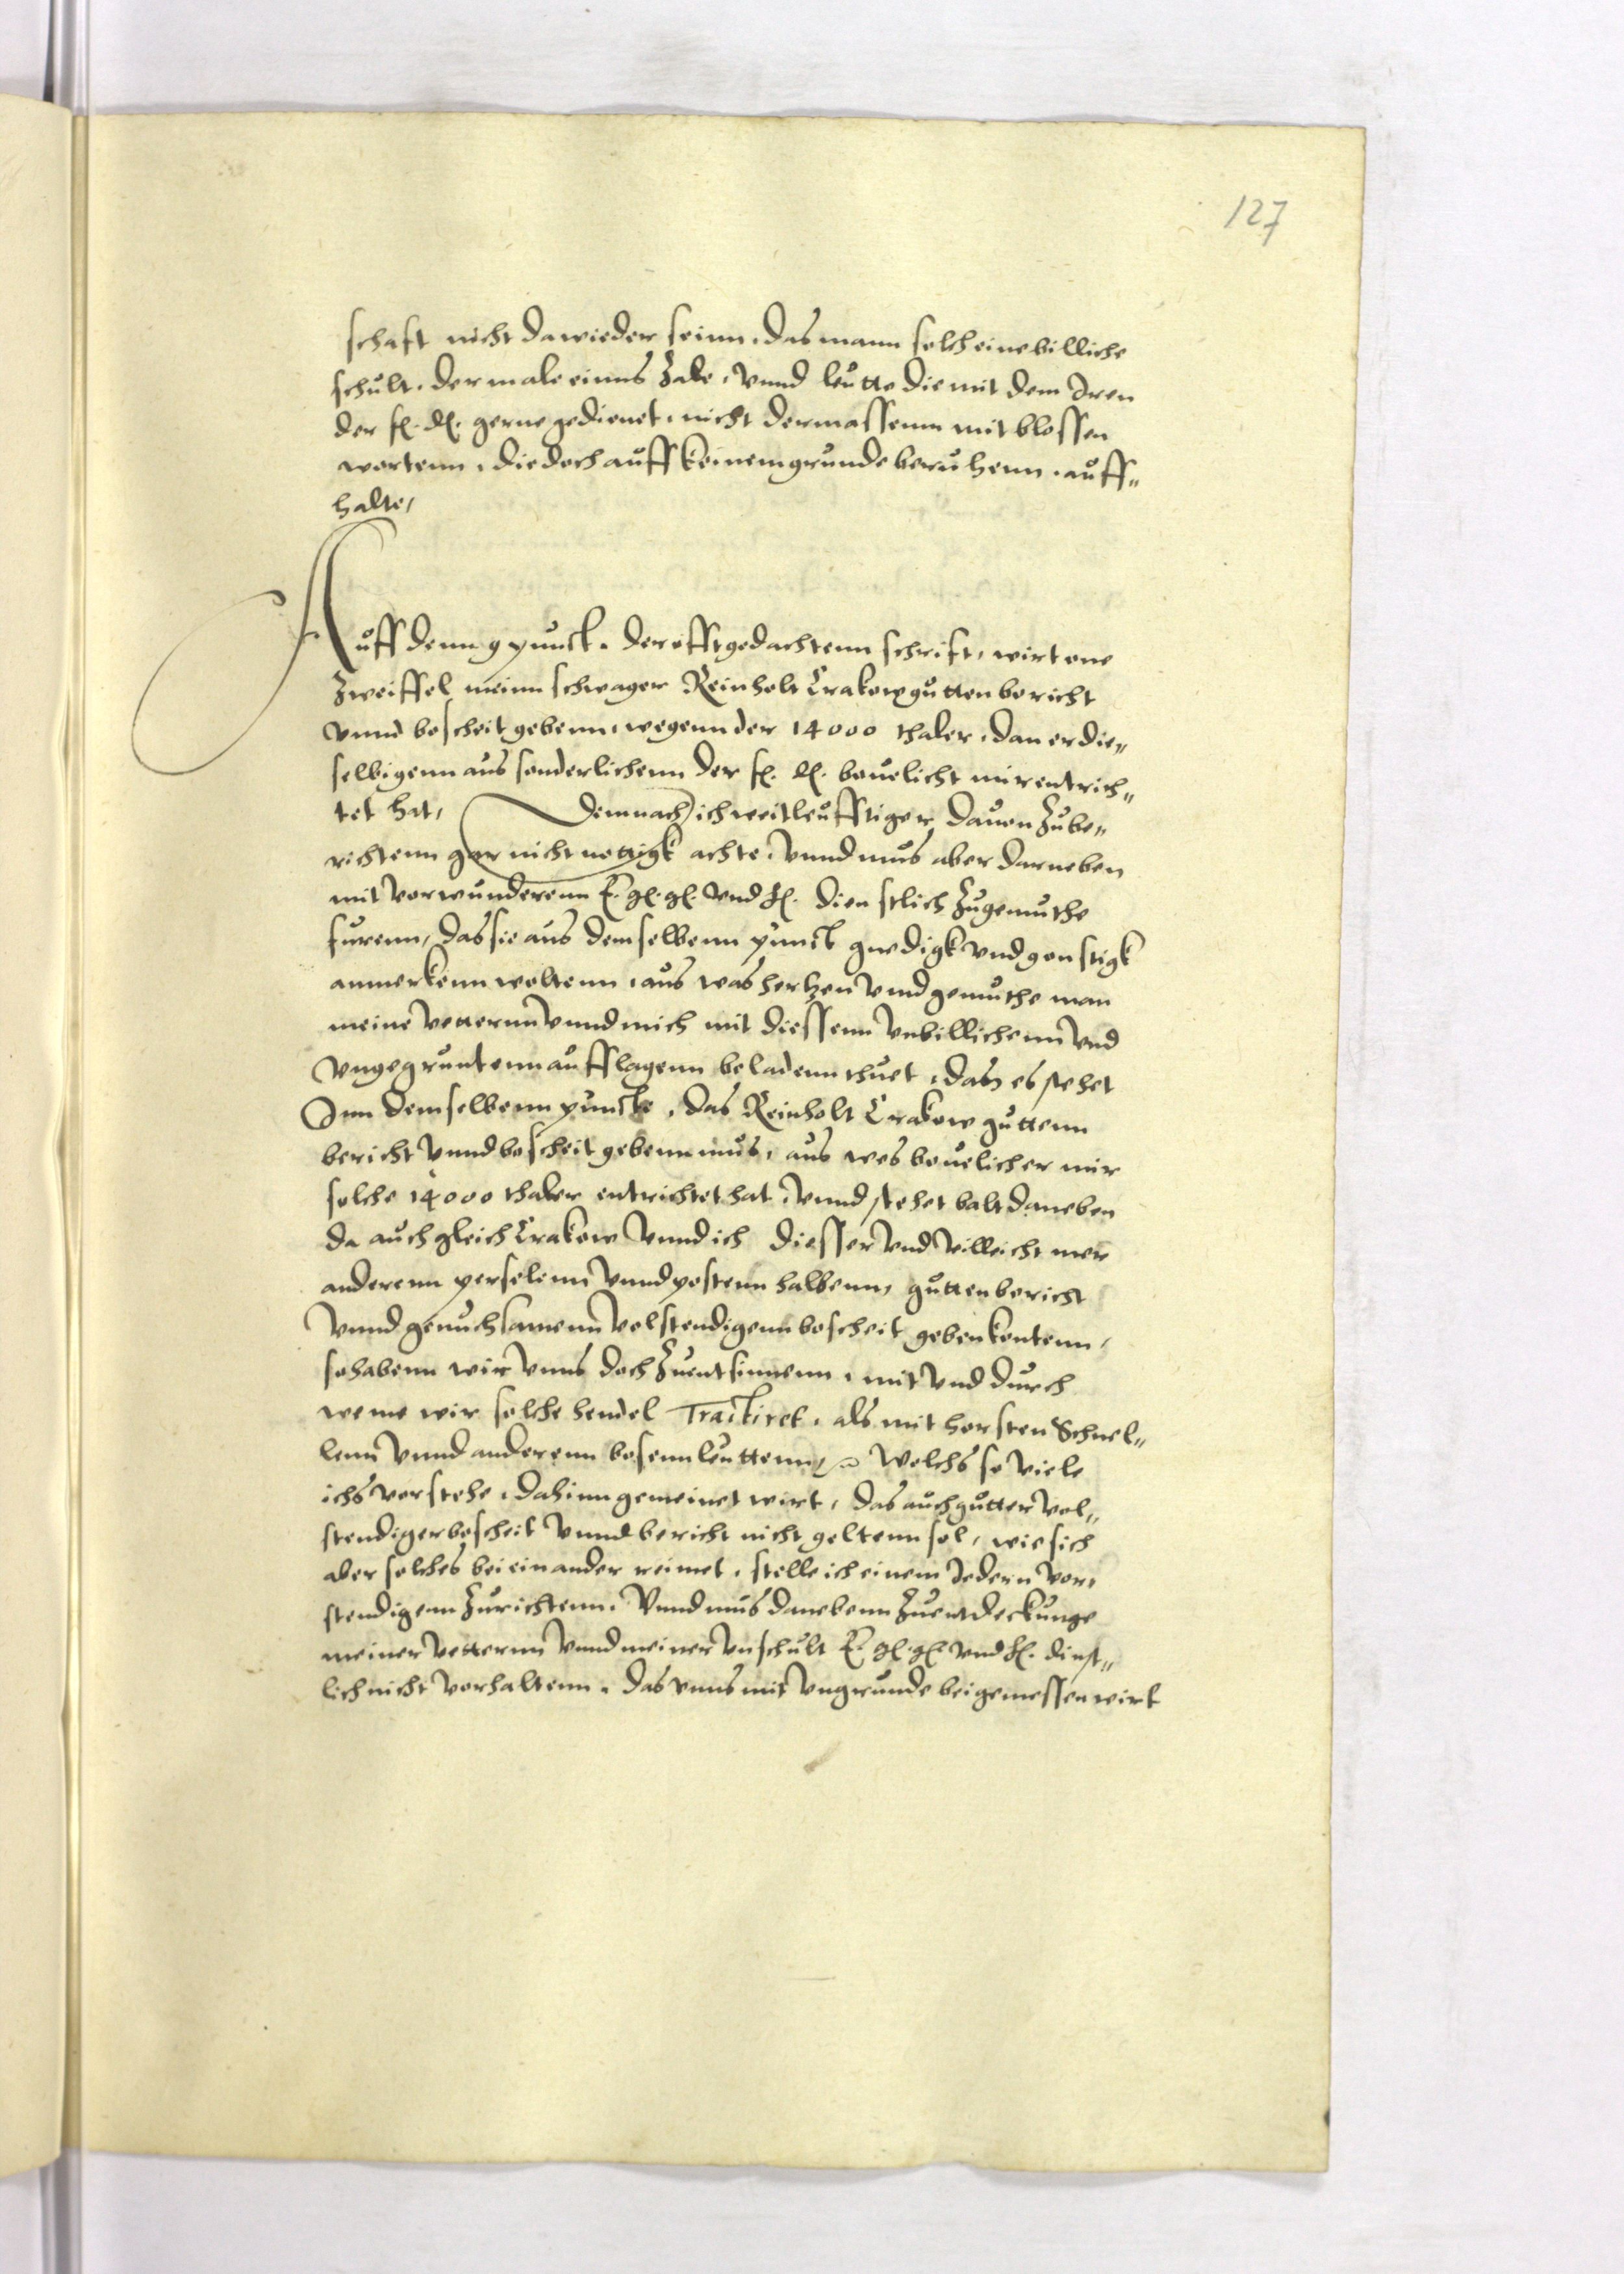 127
schaft nicht dawieder seinn, das mann solch eine billiche
schult, der male einns zale, vnnd leutte die mit dem Iren
der f. d. gerne gedienet, nicht dermassenn mit blossen
wortenn, die doch auff keinem grunde beruhenn, auff„
halte,
Auff denn 9 punct, der offtgedachtenn schrift, wirt one
zweiffel meinn schwager Reinholt Crakow gutten bericht
vnnd bescheit gebenn, wegenn der 14000 thaler, dan er die„
selbigenn aus sonderlichenn der f. d. beuelicht mir entrich„
tet hat, Demnach ich weitleufftiger dauon zube„
richtenn gar nicht nottigk achte, vnnd mus aber darneben
mit vorwunderenn E. g. g. vnd f. dienstlich zugemuthe
furenn, das sie aus demselbenn punct gnedigk vnd gonstigk
anmerkenn woltenn, aus was hertzen vnnd gemuthe man
meine vetternn vnnd mich mit diessenn vnbillichenn vnd
vngegruntenn aufflagenn beladenn thuet, dan es stehet
Inn demselbenn puncte, das Reinholt Crakow guttenn
bericht vnnd bescheit gebenn mus, aus wes beuelich er mir
solche 14000 thaler entrichtet hat, vnnd stehet balt daneben
da auch gleich Crakow vnnd ich diesser vnd villeicht mer
anderenn perselenn vnnd postenn halbenn, gutten bericht
vnnd genuchsamenn volstendigenn bescheit geben kontenn,
so habenn wir vnns doch zuentsinnenn, mit vnd durch
weme wir solche hendel Tractiret, als mit horsten Schnel„
lenn vnnd anderenn bosenn leuttenn, Welchs so viele
ichs vorstehe, dahinn gemeinet wirt, das auch gutter vol„
stendiger bescheit vnnd bericht nicht geltenn sol, wie sich
aber solches bei einander reimet, stelle ich einem Jedern vor„
stendigenn zurichtenn, Vnnd mus danebenn zuentdeckunge
meiner vetternn vnnd meiner vnschult E. g. g. vnd f. dinst„
lich nicht vorhaltenn, das vnns mit vngrunde beigemessen wirt